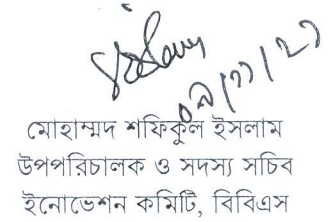 ০৯/১১/২১
মোহাম্মদ শফিকুল ইসলাম
উপপরিচালক ও সদস্য সচিব
ইনোভেশন কমিটি, বিবিএস